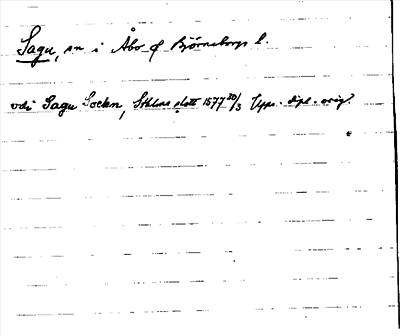 Sagu, sn i Åbo o Björneborgs l.
vdi Sagu Socken, Sthlms slott 1577 30/3 Upps. dipl. orig.